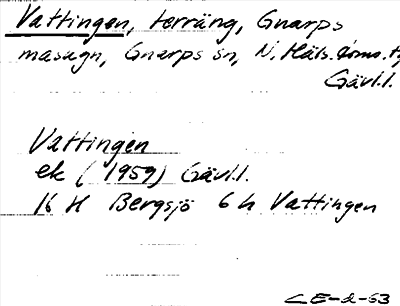 Vattingen, terräng, Gnarps
masugn, Gnarps sn, N. Häls. doms. t
Gävl.l.
Vattingen
ek (1959) Gävl.l.
16 H Bergsjö 6 h Vattingen
CE-2-63